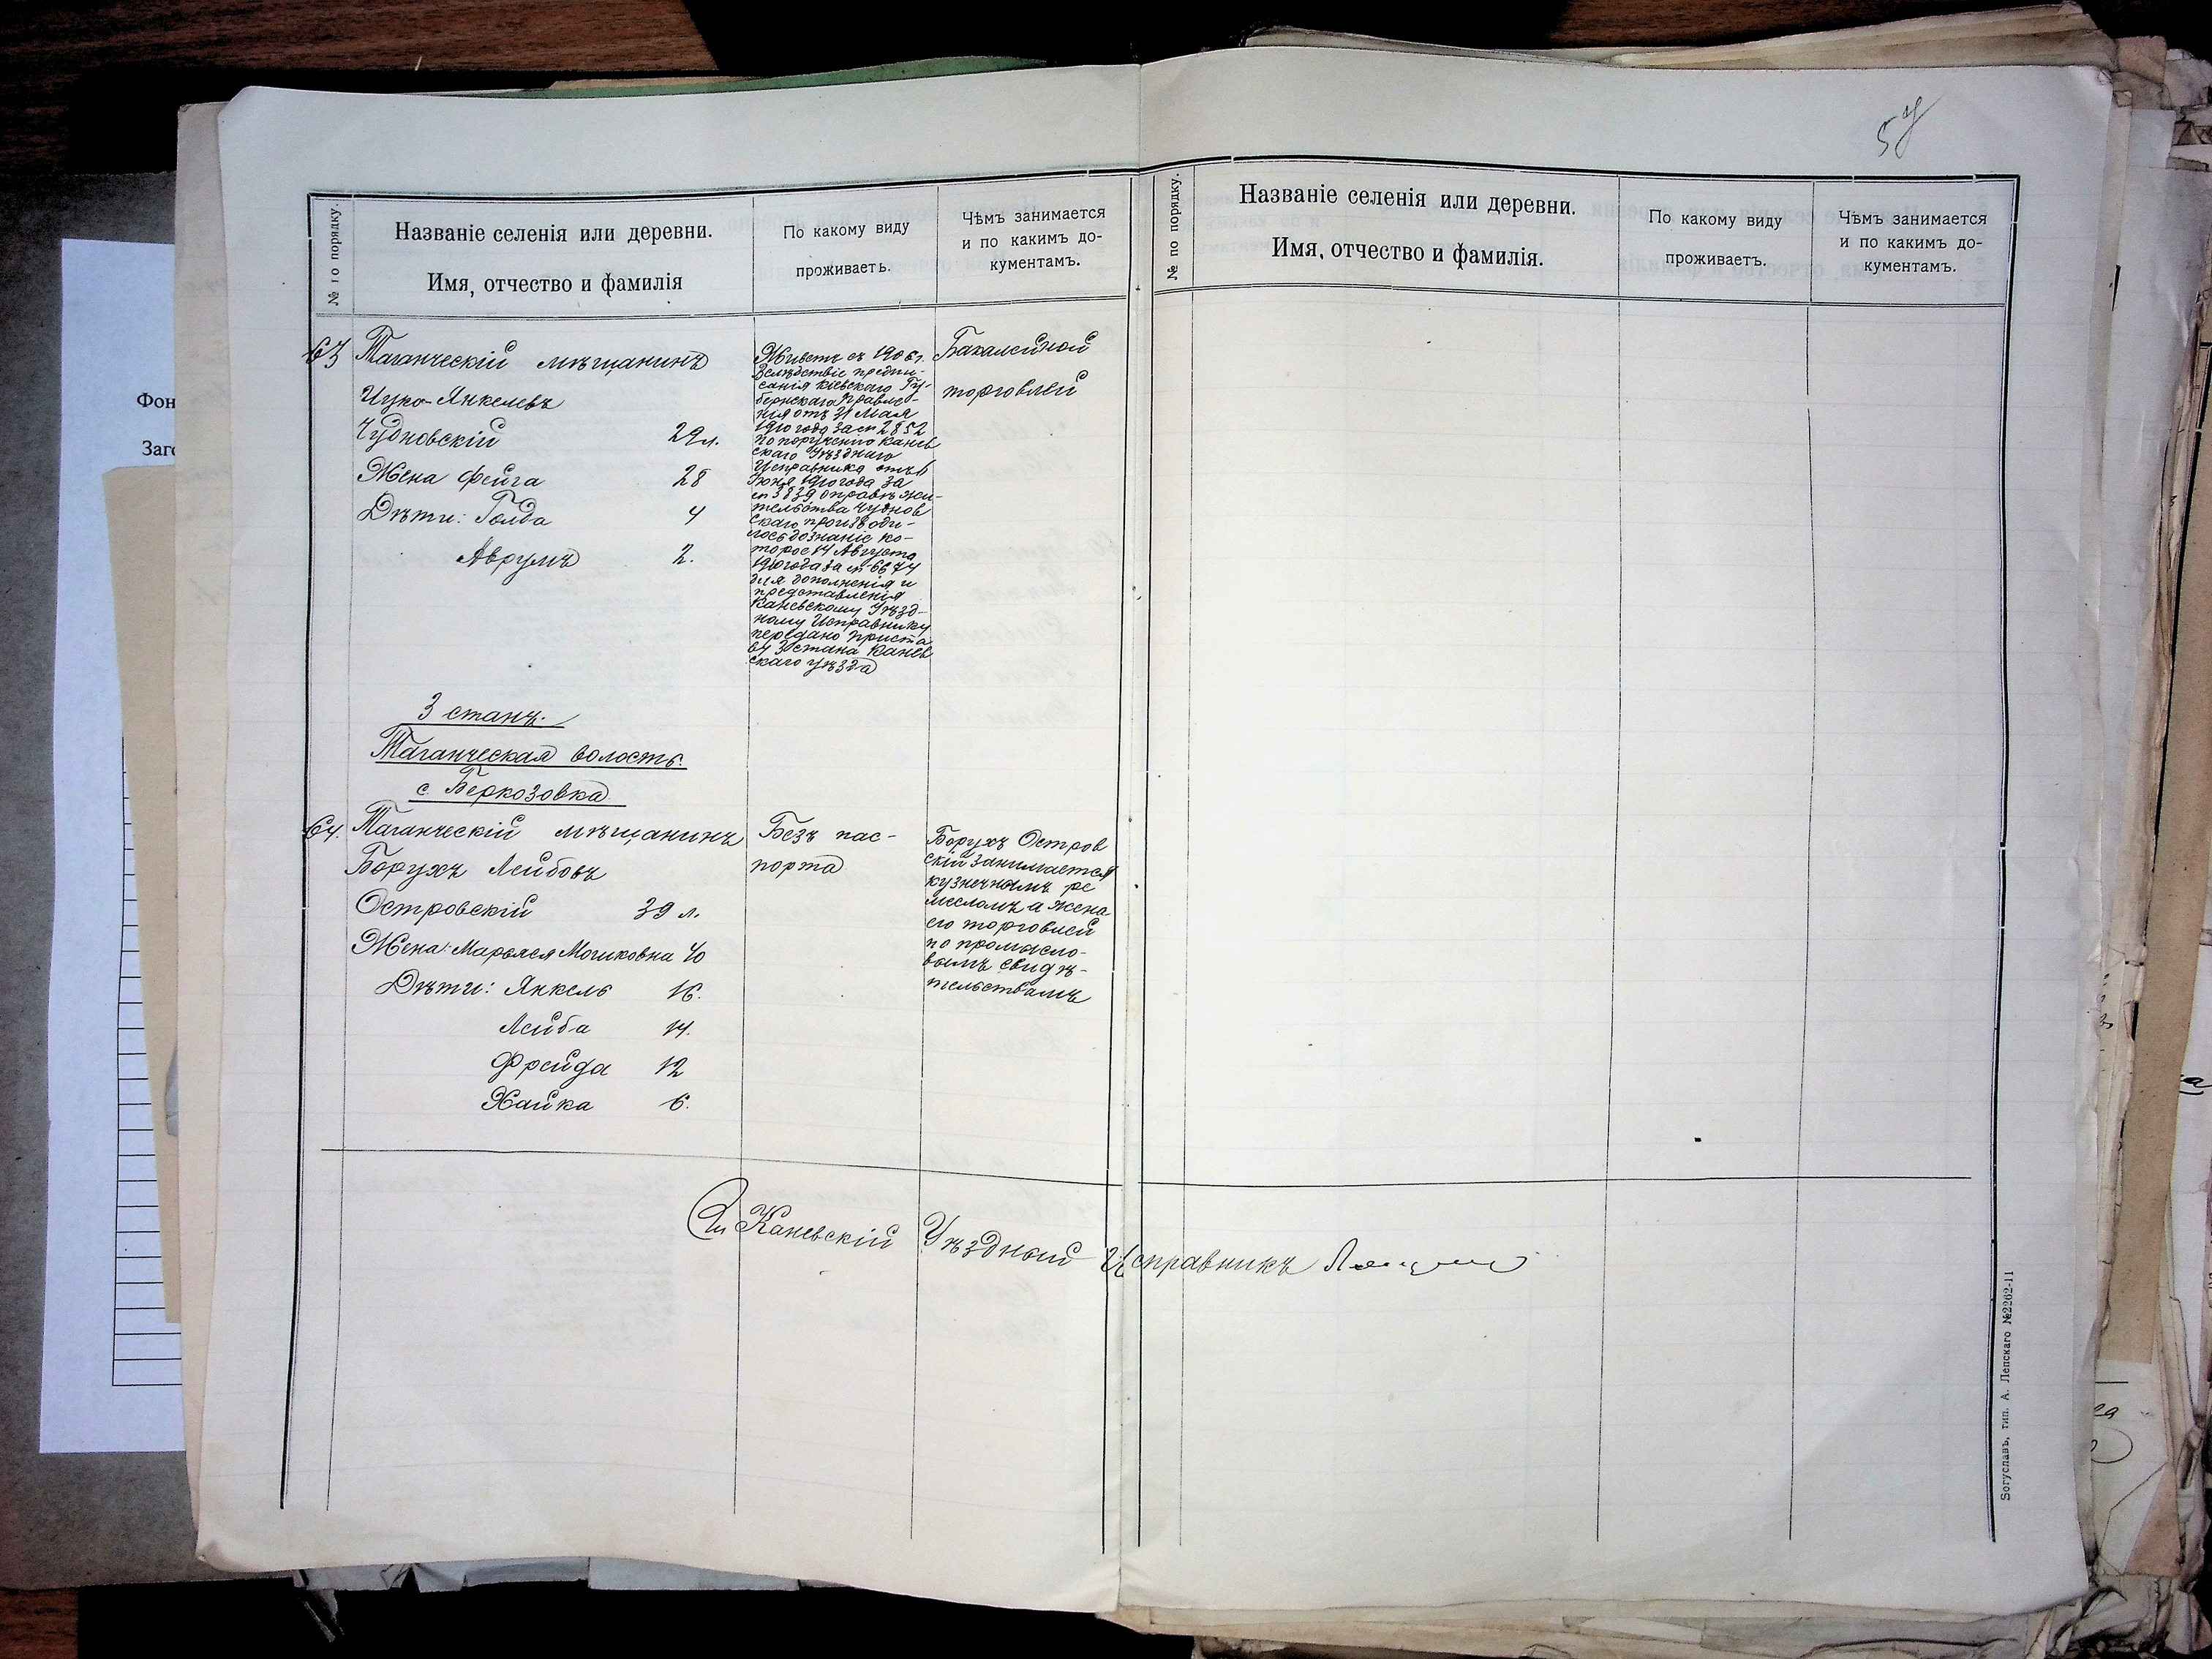 57
№ по порядку.
Названіе селенія или деревни.
Имя, отчество и фамилія
По какому виду
проживаетъ.
Чѣмъ занимается
и по какимъ до-
кументамъ.
63
Таганческій мѣщанинъ
Ицко-Янкелевъ
Чудновскій 29 л.
Жена Фейга 28
Дѣти: Голда 4
Аврумъ 2.
Живетъ съ 1906 г.
Вслѣдствіе предпи-
санія Кіевскаго Гу-
бернскаго Правле-
нія отъ 31 Мая
1910 года за № 2852
по порученію Канев
скаго Уѣзднаго
Исправника отъ
Іюня 1910 года за
№ 3839 о правѣ жи-
тельства Чуднов
скаго производи-
лось дознаніе ко-
торое 14 Августа
1910 года за № 6674
для дополненія и
представленія
Каневскому Уѣзд-
ному Исправнику
передано Приста
ву 3 стана Канев
скаго уѣзда
Бакалейной
торговлей
3 станъ.
Таганческая волость.
с. Беркозовка
64.
Таганческій мѣщанинъ
Борухъ Лейбовъ
Островскій 39 л.
Жена: Марьяся Мошковна 40
Дѣти: Янкель 16.
Лейба 14.
Фрейда 12
Хайка 6.
Безъ пас-
порта
Борухъ Остров
скій занимается
кузнечнымъ ре
месломъ а жена
его торговлей
по промысло-
вымъ свидѣ-
тельствамъ
Каневскій Уѣздный Исправникъ
№ по порядку.
Названіе селенія или деревни.
Имя, отчество и фамилія.
По какому виду
проживаетъ.
Чѣмъ занимается
и по какимъ до-
кументамъ.
Богуславъ, тип. А. Лепскаго №2262-11
Фон
Заго